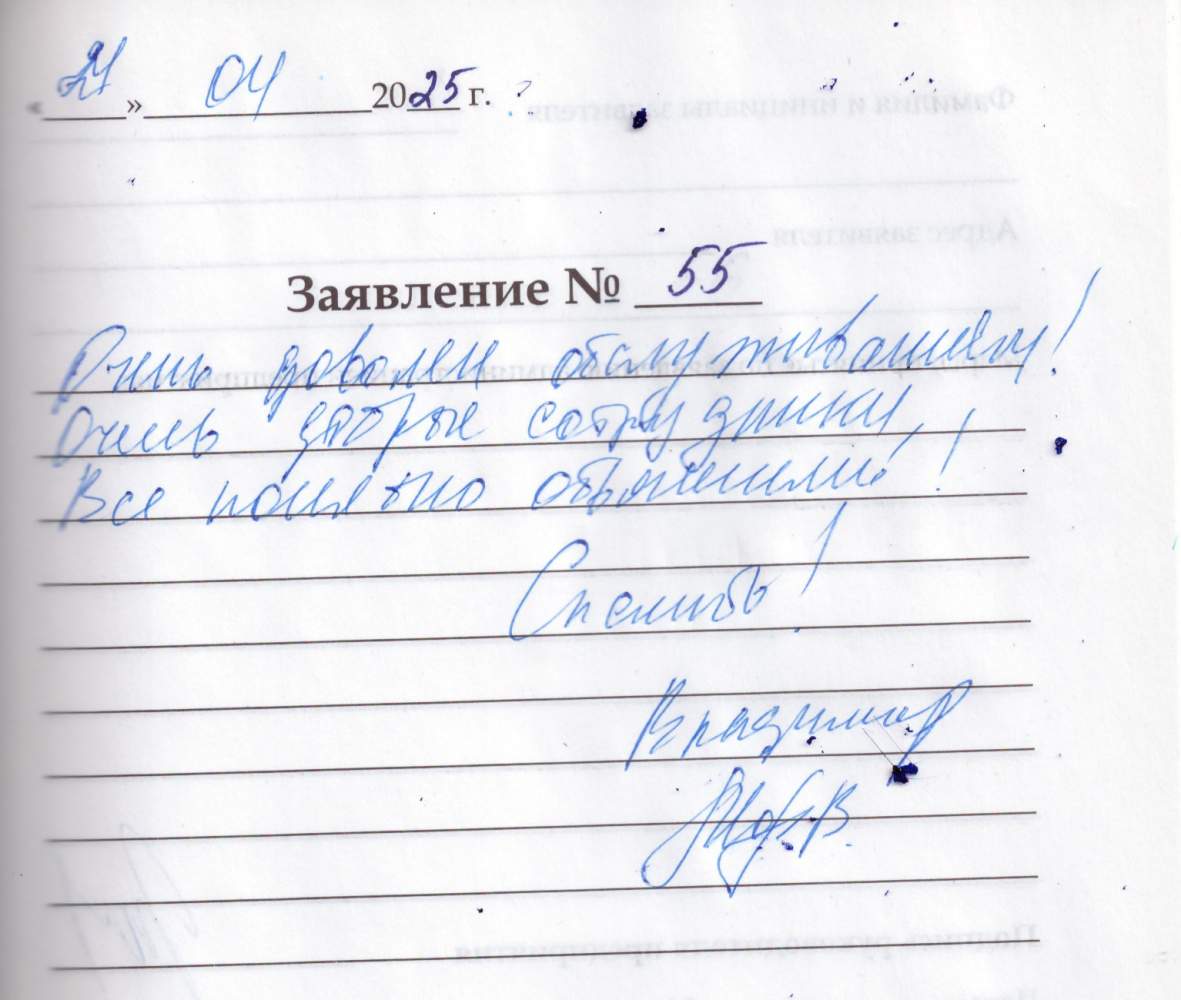 « 21 » 04 2025 г.
Заявление № 55
Очень доволен обслуживанием!
Очень добрые сотрудники,
Все понятно объяснили!
Спасибо!
Владимир